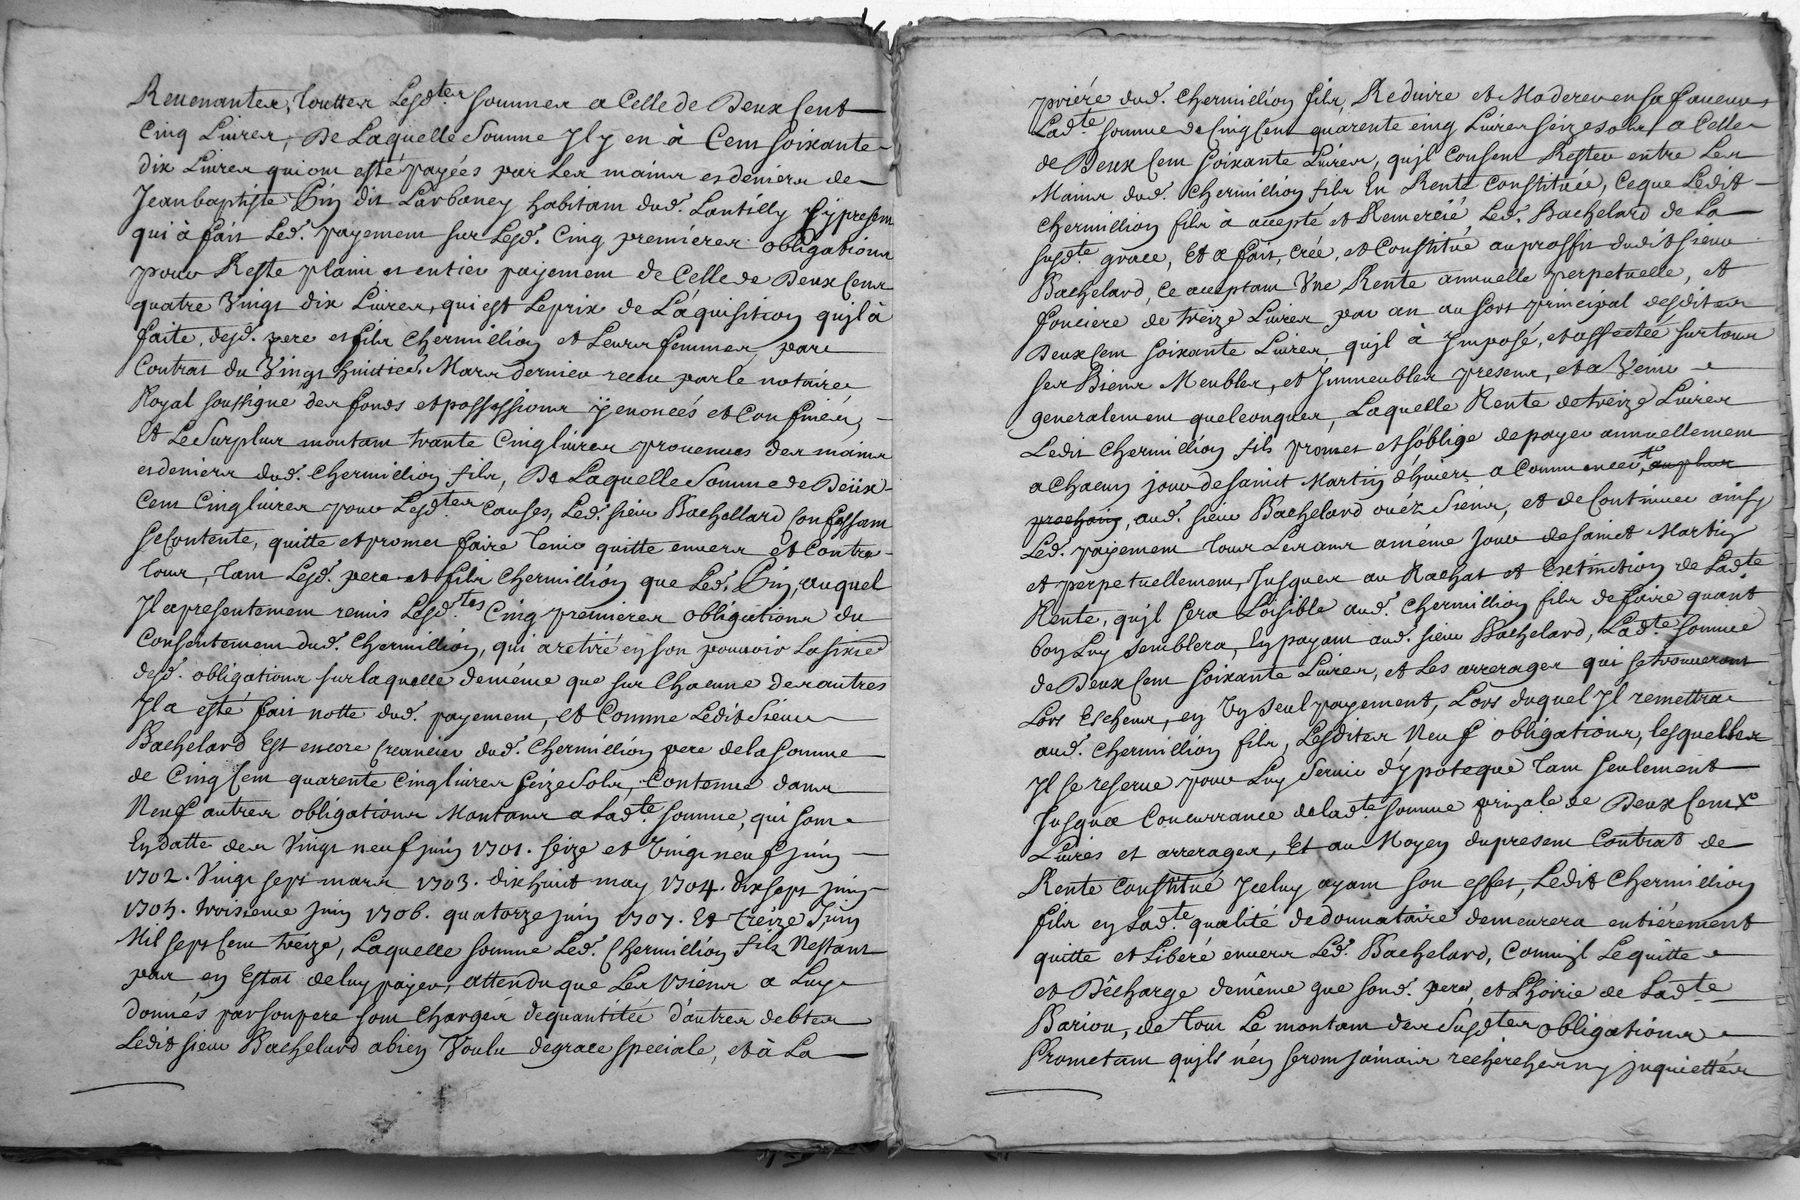 Reuenantes, touttes Lesd.tes sommes a Celle de Deux Cent
Cinq Liures, De Laquelle Somme Jl y en à Cent soixante
dix Liures qui ont esté payées par Les mains et deniers de
Jean baptiste Pin dit Larbaney habitant dud. Lantilly Cy present
qui à fait Led. payement sur Lesd. Cinq premieres obligations
pour Reste plain et entier payement de Celle de Deux Cent
quatre Vingt dix Liures, qui est Le prix de L'áquisition quil à
faite, desd. pere et fils Chermillion et Leurs femmes, par
Contrat du Vingt huitie. Mars dernier receu par le notaire
Royal soussigné des fonds et possessions ÿ enoncés et Confinés,
Et Le Surplus montant trante Cinq liures prouenues des mains
et deniers dud. Chermillion fils, De Laquelle Somme de Deüx
Cent Cinq liures pour Lesd.tes Causes, Led. sieur Bachellard Confessant
se Contente, quitte et promet faire tenir quitte enuers et Contre
tous, tant Lesd. pere et fils Chermillion que Led. Pin, auquel
Jl a presentement remis Lesd.tes Cinq premieres obligations du
Consentement dud. Chermillion, qui a retiré en son pouuoir La sixie.
desd. obligations sur laquelle de méme que sur Chacune des autres
Jl a esté fait notte dud. payement, et Comme Ledit Sieur
Bachelard Est encore Creancier dud. Chermillion pere de la somme
de Cinq Cent quarente Cinq liures seize Sols, Contenue dans
Neuf autres obligations Montant a Lad.te somme, qui sont
En datte des Vingt neuf juin 1701. seize et Vingt neuf juin
1702. Vingt sept mars 1703. dix huit may 1704. dix sept juin
1705. troisieme juin 1706. quatorze juin 1707. Et treize Juin
Mil sept Cent treize, Laquelle somme Led. Chermillion fils N'estant
pas en Estat de luy payer, attendu que Les biens a Luy
donnés par son pere sont Chargés de quantitée d'autres debtes
Ledit sieur Bachelard a bien Voulu de grace speciale, et à La
priére dud. Chermillion fils, Reduire et Moderer en sa faueur
Lad.te somme de Cinq Cent quarente cinq Liures séize sols a Celle
de Deux Cent soixante Liures, quil Consent Rester entre Les
Mains dud. Chermillion fils En Rente Constituée, Ce que Ledit
Chermillion fils à accepté et Remercié Led. Bachelard de La
susd.te grace, Et a fait, créé, et Constitué au proffit dudit sieur
Bachelard, Ce acceptant Vne Rente annuelle perpetuelle, et
fonciere de treize Liures par an au sort principal desdites
Deux Cent soixante Liures, quil à Jmposé, et affectée sur tous
ses Biens Meubles, et Jmmeubles présens, et a Venir
generalement quelconques, Laquelle Rente de treize Liures
Ledit Chermillion fils promet et s'oblige de payer annuellement
a Chacun jour de sainct Martin d'hiuers a Commencer, au plus
prochain, aud. sieur Bachelard ou éz Siens, et de Continuer ainsy
Led. payement tous Les ans a méme Jour de sainct Martin
et perpetuellement, Jusques au Rachat et Extinction de Lad.te
Rente, quil sera Loisible aud. Chermillion fils de faire quant
bon Luy semblera, En payant aud. sieur Bachelard, Lad.te somme
de Deux Cent soixante Liures, et Les arrerages qui se trouueront
Lors Escheus, en Vn seul payement, Lors duquel Jl remettra
aud. Chermillion fils, Lesdites Neuf obligations, lesquelles
Jl se reserue pour Luy Seruir d'ÿpoteque tant seulement
Jusqu'a Concurrance de lad.te somme prinpale de Deux Cent
Liures et arrerages, Et au Moyen du present Contrat de
Rente Constitué Jceluy ayant son effet, Ledit Chermillion
fils en Lad.te qualité de donnataire demeurera entiérement
quitte et Libéré enuers Led. Bachelard, Comme Jl Le quitte
et Décharge de méme que sond. pere, et L'hoirie de Lad.te
Bariou, de tout Le montant des Susd.tes obligations
Promettant quils n'en seront jamais recherchés ny jnquiettés